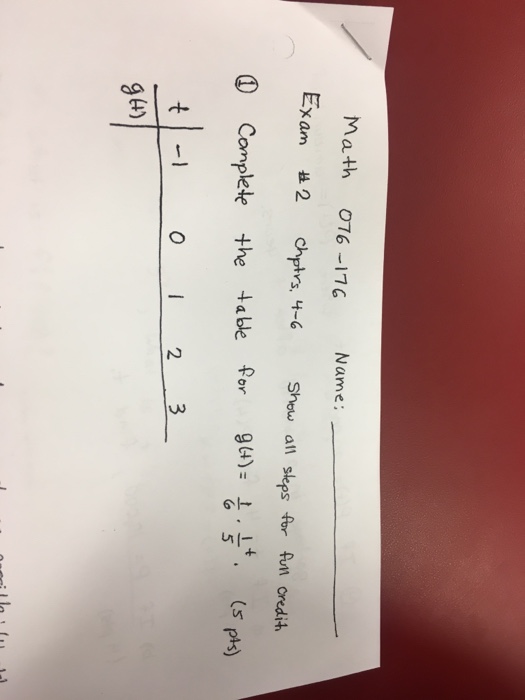 Math 076-176 Name:
Exam #2 Chptrs. 4-6 Show all steps for full credit
① Complete the table for g(t) = 1/6 · 1/5^t. (5 pts)
t | -1 0 1 2 3
g(t) |